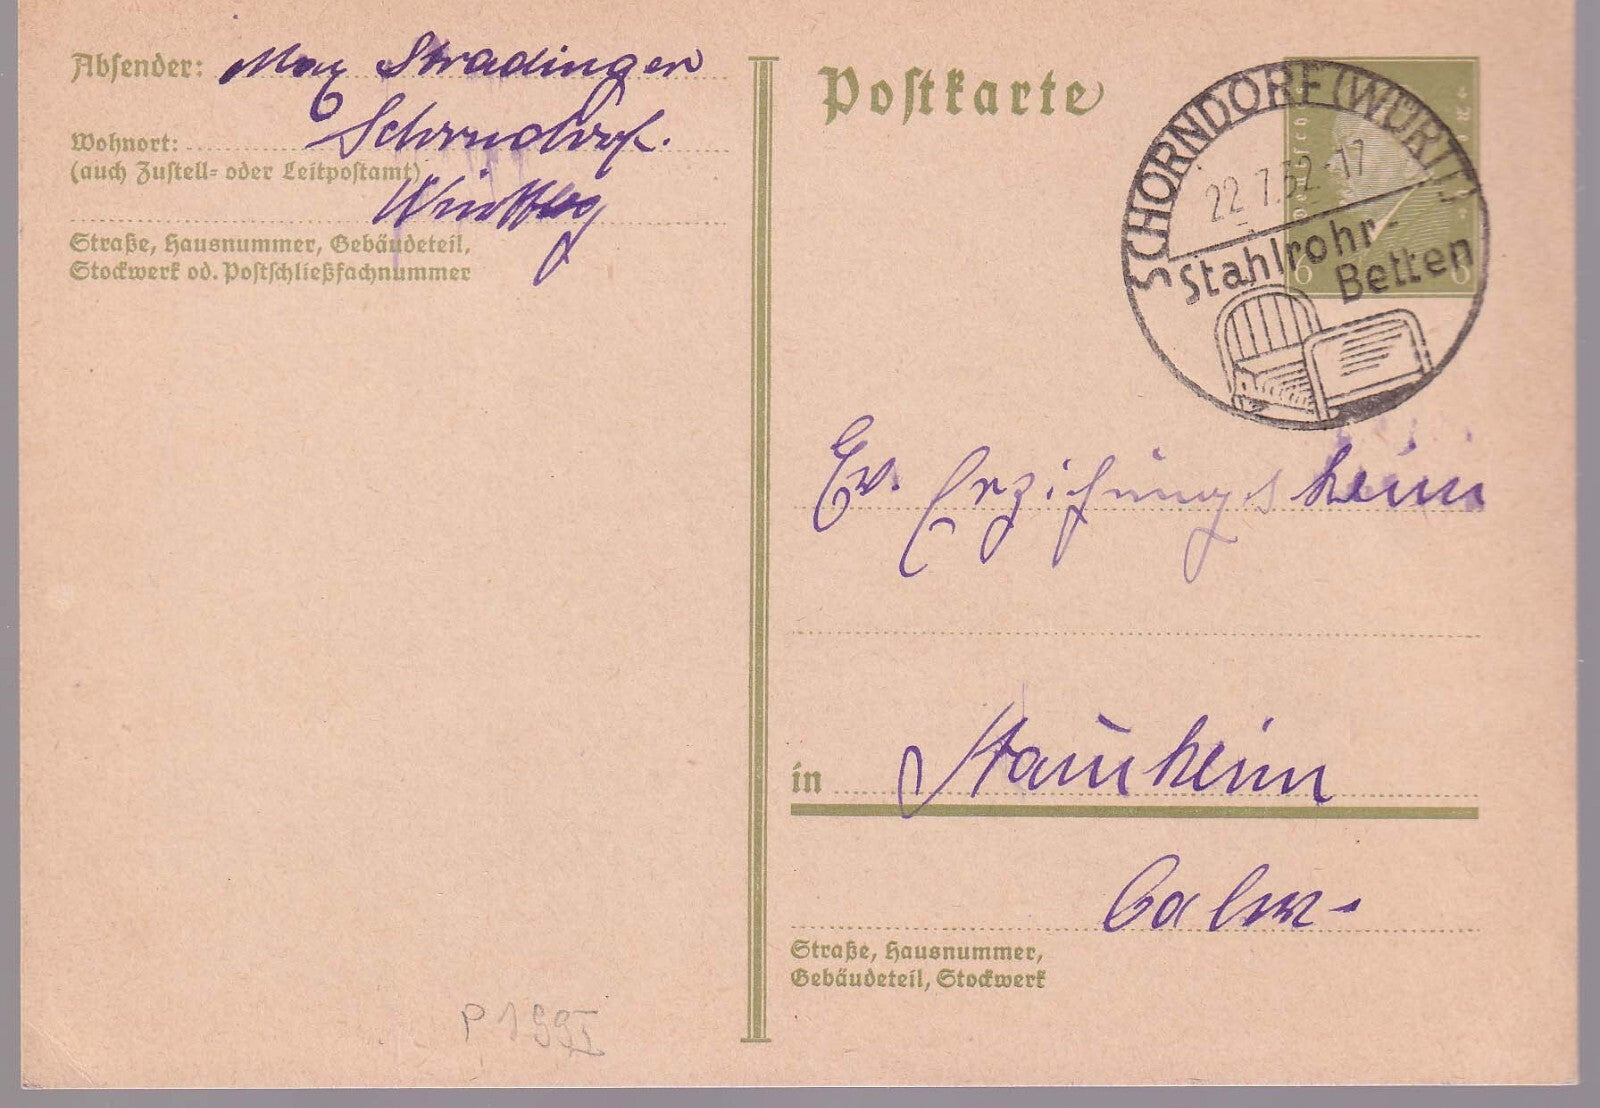 Absender: Max Stradinger
Wohnort: Schorndorf.
(auch Zustell- oder Leitpostamt)
Straße, Hausnummer, Gebäudeteil,
Stockwerk od. Postschließfachnummer
Postkarte
Deutsches Reich
6 6
SCHORNDORF (WÜRTT)
22.7.32.-17
Stahlrohr-
Betten
Ev. Erziehungsheim
in Stammheim
Calw.
Straße, Hausnummer,
Gebäudeteil, Stockwerk
P 199 I